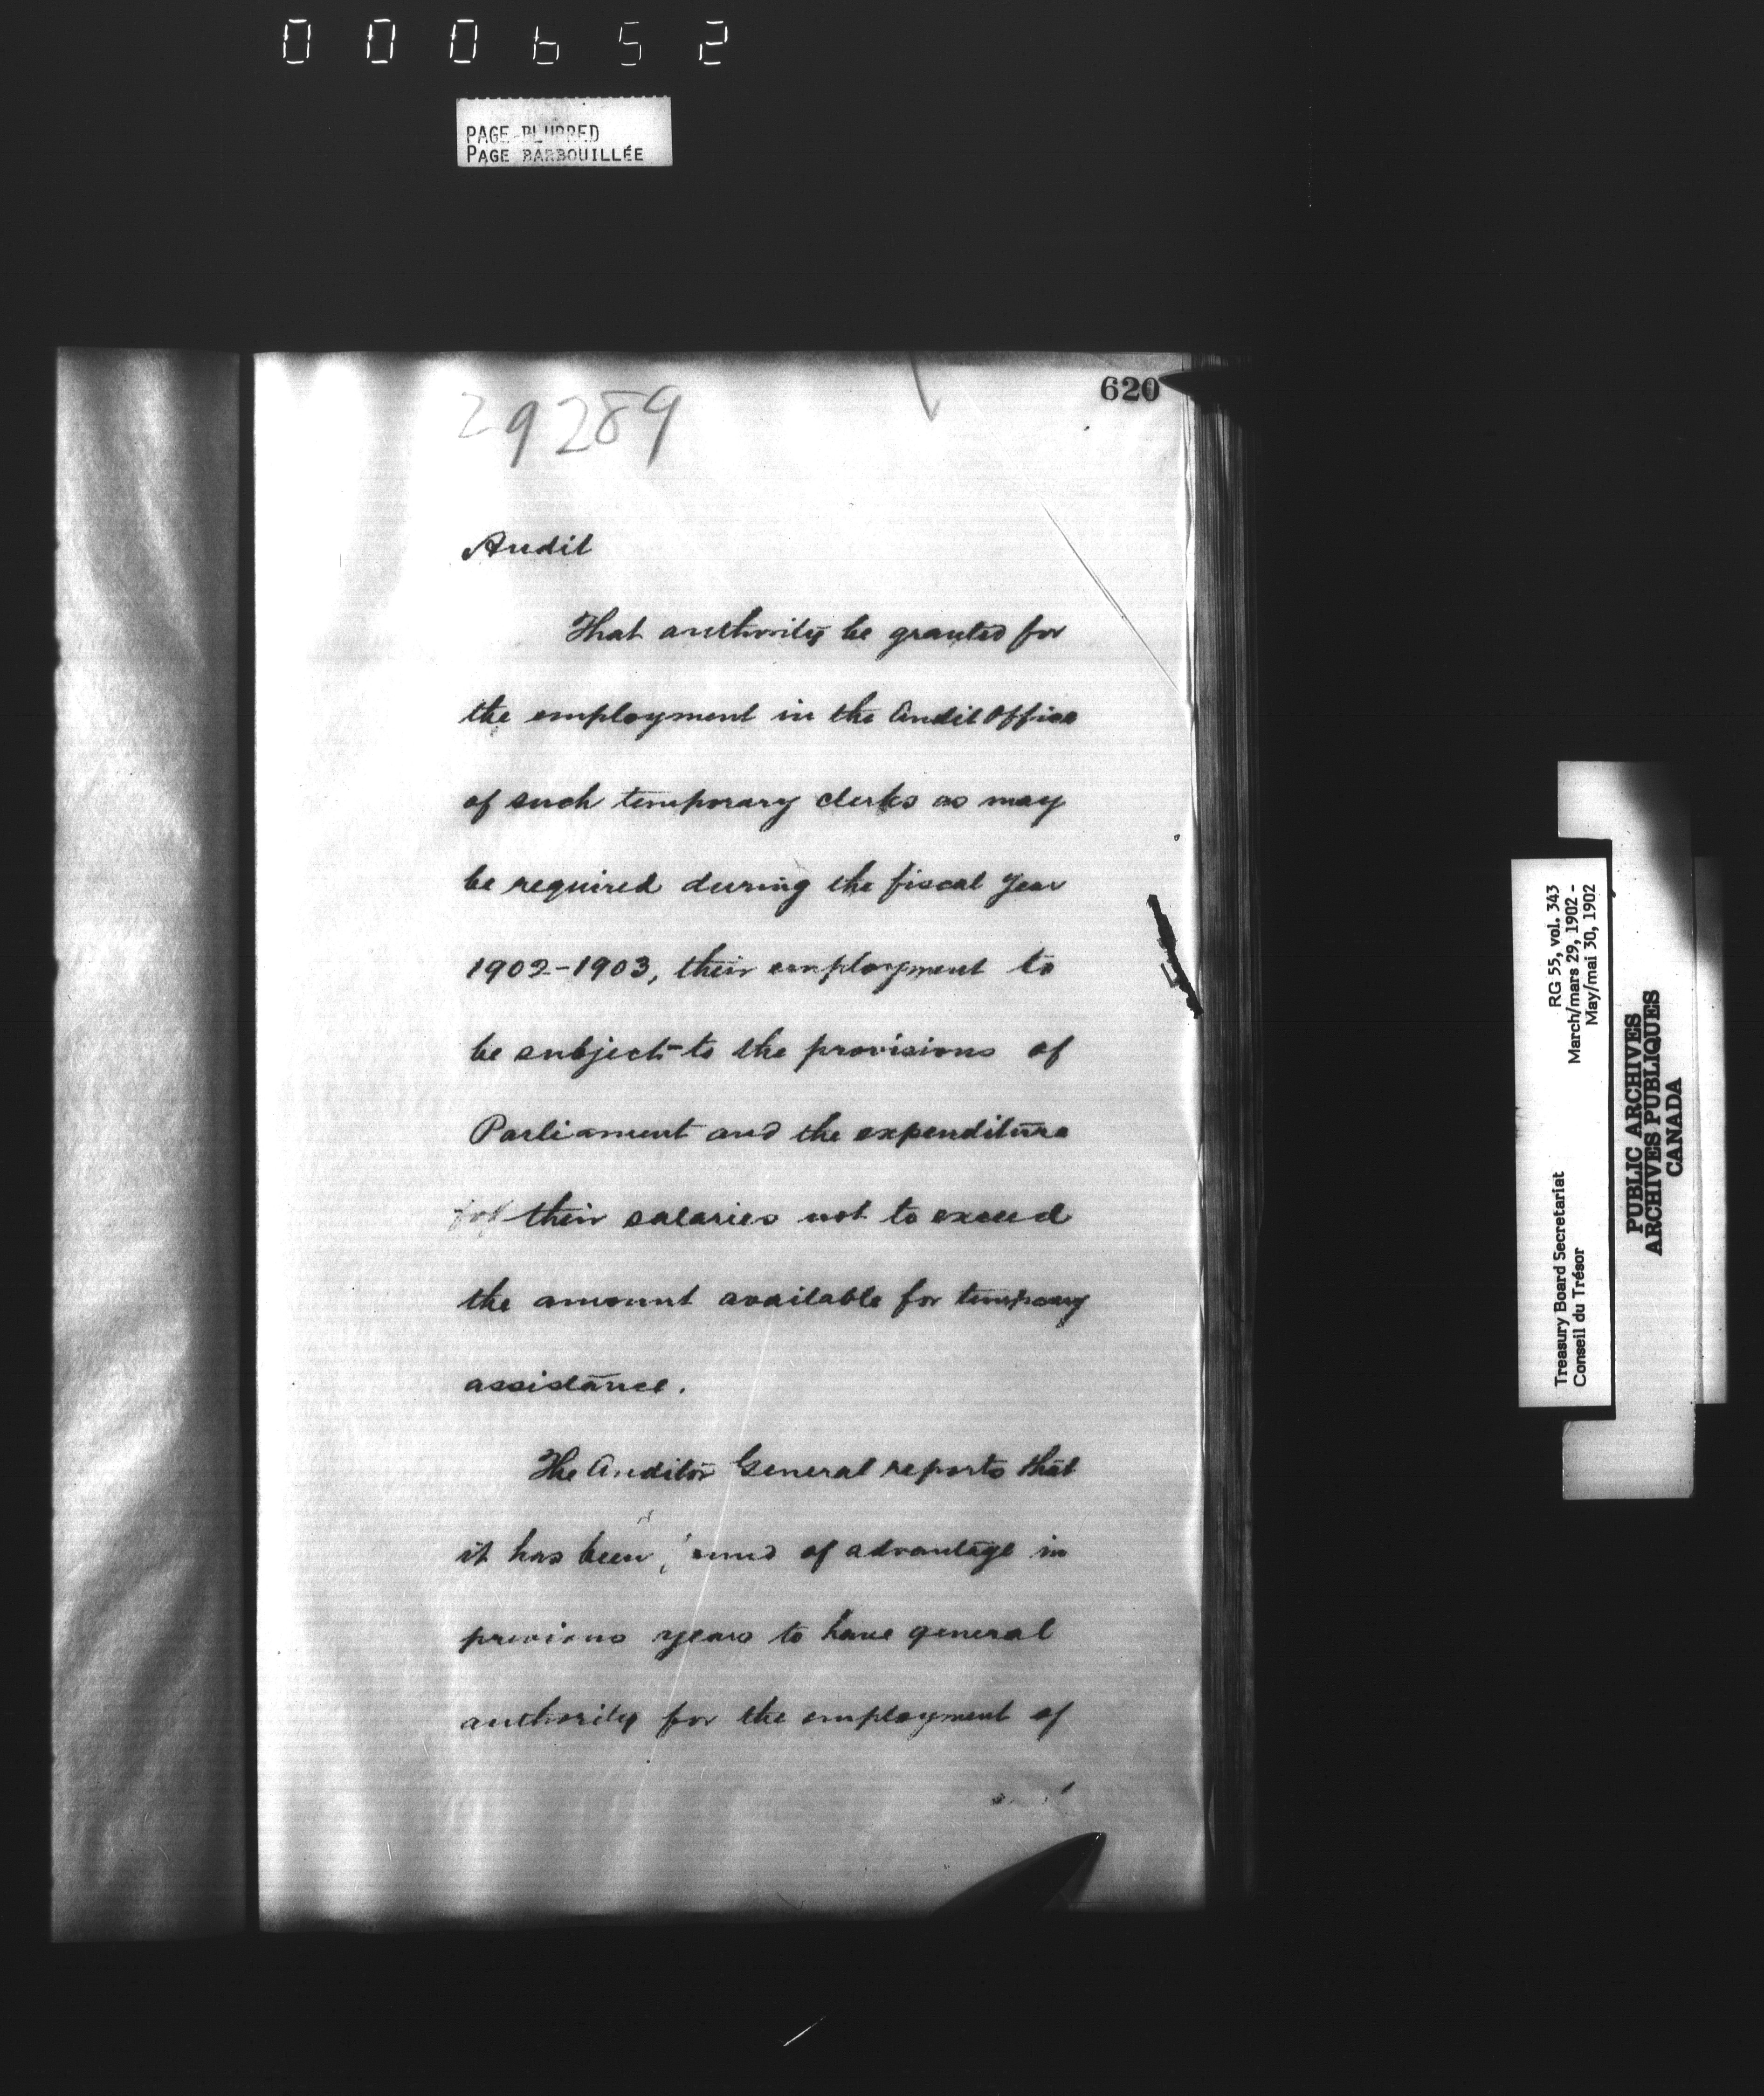 000652
PAGE BLURRED
PAGE BARBOUILLÉE
620
29289
Audit
That authority be granted for
the employment in the Audit Office
of such temporary clerks as may
be required during the fiscal year
1902-1903, their employment to
be subject to the provisions of
Parliament and the expenditure
for their salaries not to exceed
the amount available for temporary
assistance.
The Auditor General reports that
it has been found of advantage in
previous years to have general
authority for the employment of
Treasury Board Secretariat RG 55, vol. 343
Conseil du Trésor March/mars 29, 1902 -
May/mai 30, 1902
PUBLIC ARCHIVES
ARCHIVES PUBLIQUES
CANADA